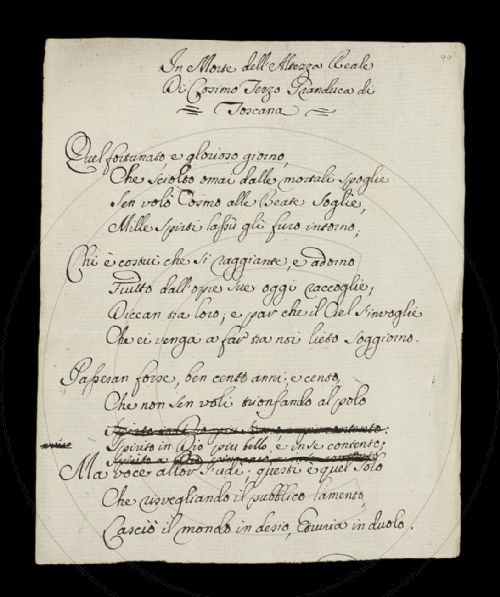 90
In Morte dell'Altezza Reale
Di Cosimo Terzo Granduca di
Toscana
Quel fortunato, e glorioso giorno,
Che sciolto omai dalle mortali spoglie
Sen volò Cosmo alle Beate soglie,
Mille spirti lassù gli furo intorno;
Chi è costui che si raggiante, e adorno
Frutto dall'opre sue oggi raccoglie,
Diccan tra loro, e par che il Ciel s'invoglie
Che ei venga a far tra noi lieto soggiorno.
Passeran forse, ben cento anni, e cento,
Che non sen voli trionfando al polo
Spirito in Dio più bello, e in se contento;
Ma voce allor s'udì; questi è quel solo
Che risvegliando il pubblico lamento,
Lasciò il mondo in desio, in duolo.